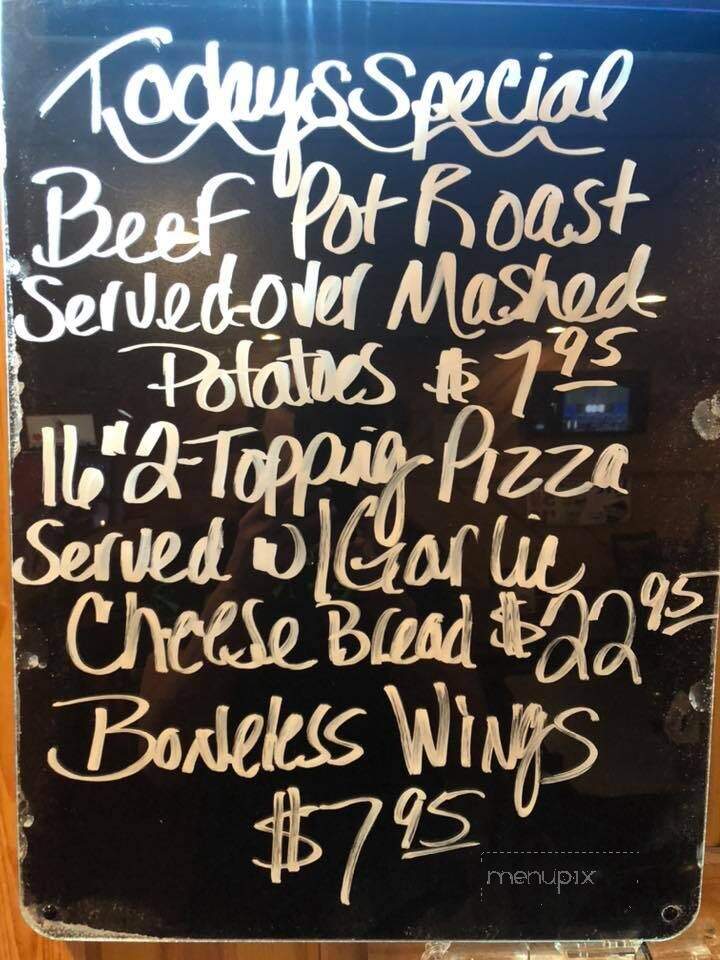 Todays Special
Beef Pot Roast
Served over Mashed
Potatoes $7.95
16" 2-Topping Pizza
Served w/Garlic
Cheese Bread $22.95
Boneless Wings
$7.95
menupix